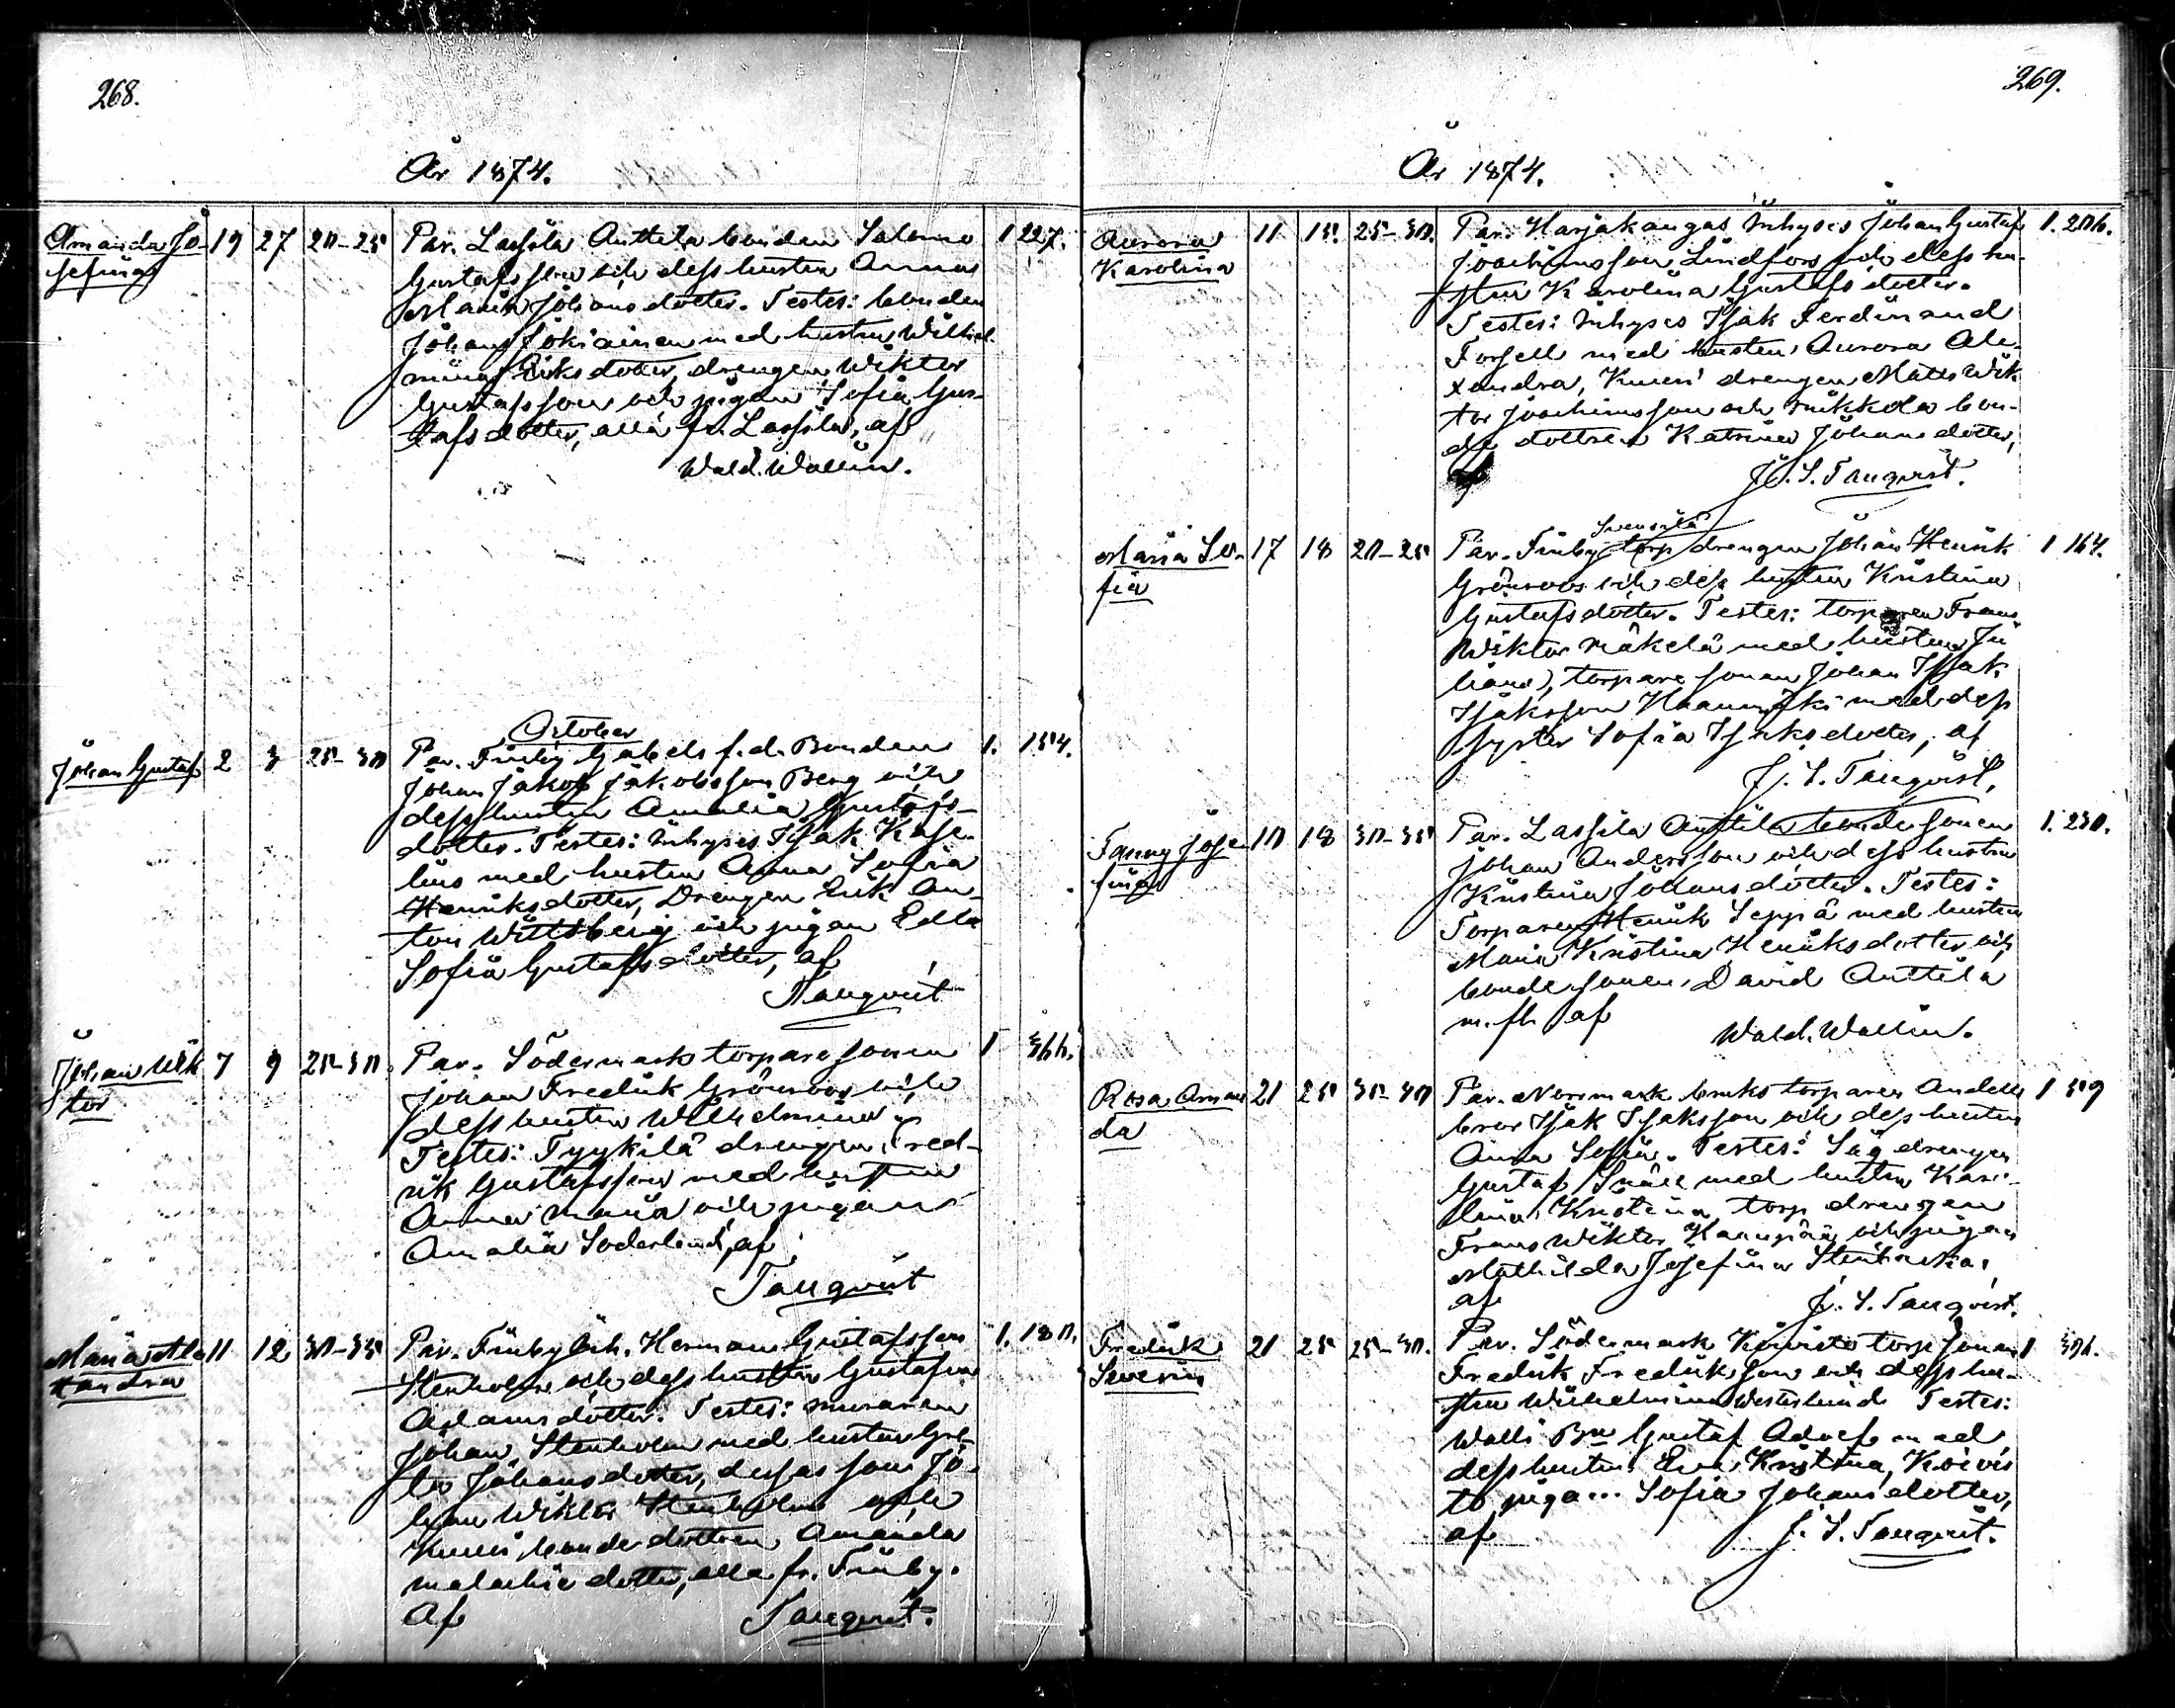 268.
År 1874.
Amanda Jo- 19 27 20-25 Par. Lassila Anttila bonden Salomo 1 227.
sefina Gustafsson och dess hustru Anna
Maria Johansdotter. Testes: bonden
Johan Jokiainen med hustru Wilhel-
mina Eriksdotter, drengen Wiktor
Gustafsson och pigan Sofia Gus-
tafsdotter, alla fr. Lassila, af
Wald. Wallin.
October
Johan Gustaf 2 3 25-30 Par. Finby Gabels f.d. Bonden 1. 154.
Johan Jakob Jakobsson Berg och
dess hustru Amalia Gustafs-
dotter. Testes: Inhyses Isak
lius med hustru Anna Sofia
Henriksdotter, Drengen Erik An-
ton och pigan Edla
Sofia Gustafsdotter, af
Tanqvist
Johan Wik 7 9 25-30. Par. Södermark torpare sonen 1 366.
tor Johan Fredrik Grönroos och
dess hustru Wilhelmina
Testes: Tyykilä drengen Fred-
rik Gustafsson med hustru
Anna Maria och pigan
Amalia Söderlund, af
Tanqvist
Maria Ale 11 12 30-35 Par. Finby Inh. Herman Gustafsson 1. 180.
xandra Stenholm och dess hustru Gustafva
Adamsdotter. Testes: muraren
Johan Stenholm med hustru Gre-
ta Johansdotter, dessas son Jo-
han Wiktor Stenholm och
Knuus bonde dottren Amanda
dotter, alla fr. Finby.
Af Tanqvist.
269.
År 1874.
Aurora 11 15. 25-30. Par. Harjakangas Inhyses Johan Gustaf 1. 206.
Karolina Joachimsson Lindfors och dess hu-
stru Karolina Gustafsdotter.
Testes: Inhyses Isak Ferdinand
Forsell med hustru Aurora Ale-
xandra, drengen Matts Wik
tor Joachimsson och bon-
de dottren Katrina Johansdotter,
af J. S. Tanqvist.
Svensilä
Maria So- 17 18 20-25 Par. Finby torp drengen Johan Henrik 1 164.
fia Grönroos och dess hustru Kristina
Gustafsdotter. Testes: torparen Frans
Wiktor Mäkelä med hustru Ju
liana, torpare sonen Johan Isak
Isaksson med dess
syster Sofia Isaksdotter, af
J. S. Tanqvist,
Fanny Jose- 10 18 30-35 Par. Lassila Anttila bonde sonen 1. 230.
fina Johan Andersson och dess hustru
Kristina Johansdotter. Testes:
Torparen Henrik Seppä med hustru
Maria Kristina Henriksdotter och
bonde sonen David Anttila
m. fl. af Wald. Wallin.
Rosa Aman 21 25 35-40 Par. Norrmark bruks torparen Andells 1 59
da bror Isak Isaksson och dess hustru
Anna Sofia. Testes: Såg drengen
Gustaf med hustru Karo-
lina Kristina torp drengen
Frans Wiktor och pigan
Mathilda Josefina
af J. S. Tanqvist.
Fredrik 21 25 25-30. Par. Södermark Koivisto torp sonen 1 306.
Severin Fredrik Fredriksson och dess hu-
stru Wilhelmina Westerlund Testes:
Walli Bn Gustaf Adolf med
dess hustru Eva Kristina, Koivis
to pigan Sofia Johansdotter,
af J. S. Tanqvist.